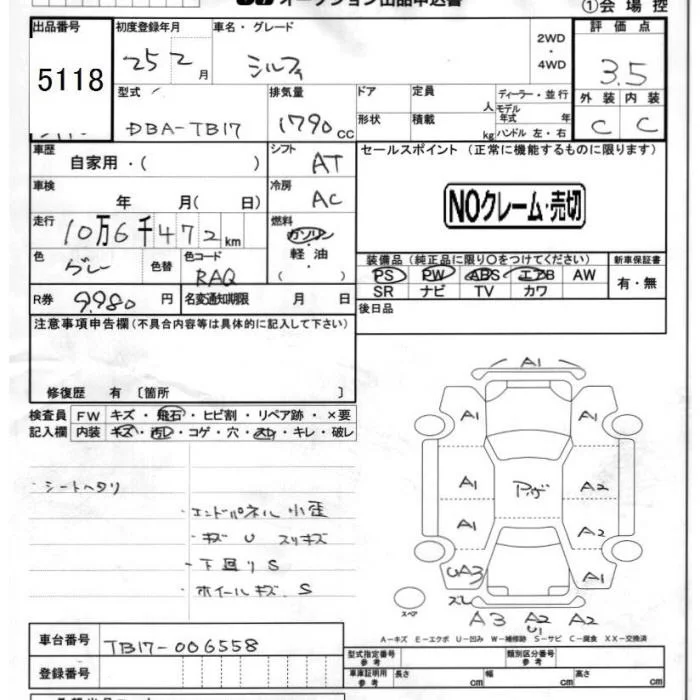 オークション出品申込書
①会場控
出品番号 初度登録年月 車名・グレード 評価点
5118 25 2 月 シルフィ 2WD ・ 4WD 3.5
型式 排気量 ドア 定員 人 ディーラー・並行 外装 内装
DBA-TB17 1790 cc 形状 積載 kg モデル年式 年 ハンドル 左・右 C C
車歴 自家用・( ) シフト AT セールスポイント (正常に機能するものに限ります)
車検 年 月( 日) 冷房 AC NOクレーム・売切
走行 10万6千472km 燃料 ガソリン・軽油・( )
色 グレー 色替 色コード RAQ 装備品 (純正品に限り○をつけてください) 新車保証書
PS PW ABS エアB AW 有・無
SR ナビ TV カワ
R券 9,980 円 名変通知期限 月 日 後日品
注意事項申告欄(不具合内容等は具体的に記入して下さい)
修復歴 有 〔箇所 〕
検査員 FW キズ・飛石・ヒビ割・リペア跡・×要
記入欄 内装 キズ・汚レ・コゲ・穴・スレ・キレ・破レ
・シートヘタリ
・エンドパネル 小歪
・キズ U スリキズ
・下回り S
・ホイールキズ、S
A1
A1 A1
A1 A2
A1 A2
UA3 A1
ズレ
スペア
A3 A2 A2
U1
A−キズ E−エクボ U−凹み W−補修跡 S−サビ C−腐食 XX−交換済
車台番号 TB17-006558
登録番号
型式指定番号 参考 類別区分番号 参考
車庫証明用 参考 長さ cm 幅 cm 高さ cm